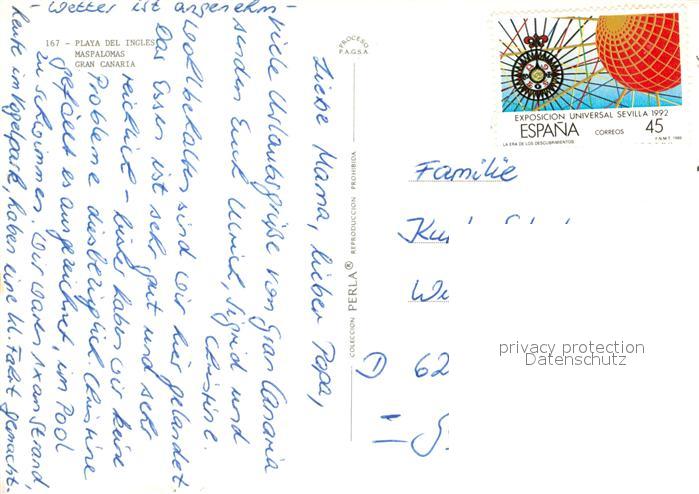 167 - PLAYA DEL INGLES
MASPALOMAS
GRAN CANARIA
Liebe Mama, lieber Papa,
viele Urlaubsgrüße von Gran Canaria
senden Euch Ulrich, Sigrid und
Christine.
Wohlbehalten sind wir hier gelandet.
Das Essen ist sehr gut und sehr
reichlich - bisher haben wir keine
Probleme diesbezüglich. Christine
gefällt es ausgezeichnet, im Pool
zu schwimmen. Wir waren 1x am Strand,
heute im Vogelpark, haben eine kl. Fahrt gemacht.
- Wetter ist angenehm -
PROCESO
P.A.G.S.A.
COLECCION PERLA® REPRODUCCION PROHIBIDA
EXPOSICION UNIVERSAL SEVILLA 1992
ESPAÑA CORREOS 45
LA ERA DE LOS DESCUBRIMIENTOS
F.N.M.T. 1988
Familie
D 62
privacy protection
Datenschutz